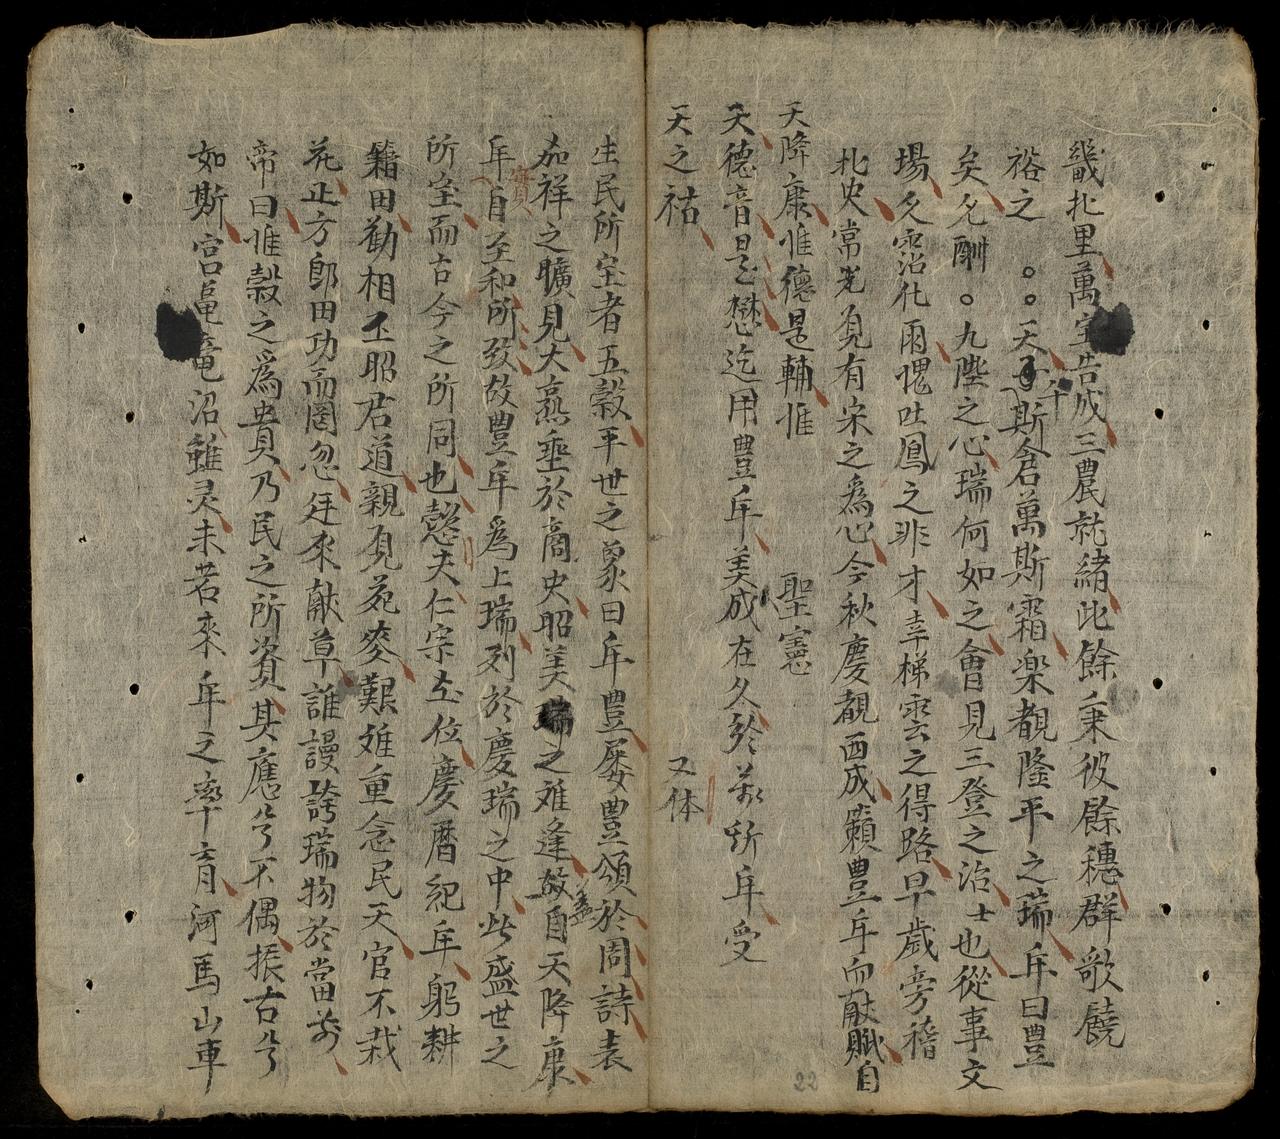 畿北里萬室告成三農就緒此餘秉彼餘穗群歌饒
裕之 ○○天子斯倉萬斯霜樂覩隆平之瑞年曰豐
千
矣允酬○九陛之心瑞何如之會見三登之治士也從事文
場久霑化雨愧吐鳳之非才幸梯雲之得路早歲旁稽
北史常光負有宋之為心今秋慶覩西成籟豐年而献賦自
天降康惟德是輔惟 聖憲
天德音是懋迄用豐年美成在久於萬斯年受
天之祜 又体
生民所宝者五穀平世之象曰年豐屡豐頌於周詩表
加祥之曠見大熹垂於商史昭美瑞之难逢故自天降康
盖
年自至和所致故豊年爲上瑞列於慶瑞之中此盛世之
實
所宝而古今之所同也懿夫仁宗在位慶暦紀年躬耕
籍田勧相丕昭君道親覓苑麥艱难重念民天官不栽
花止方郎田功而罔忽廷不献草誰謾誇瑞物於當前
帝曰惟穀之爲貴乃民之所資其應兮不偶振古兮
如斯宮黽竜沼雖灵未若來年之率育河馬山車
22